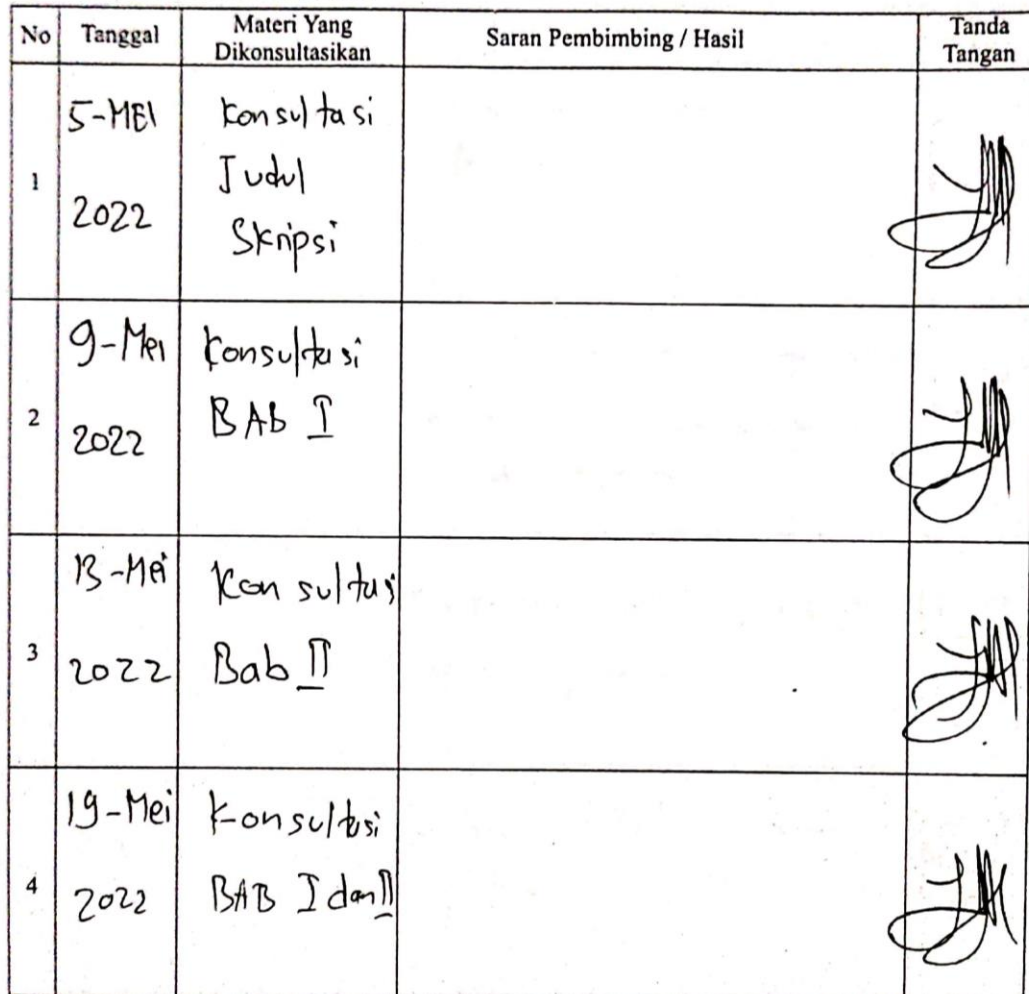 No Tanggal Materi Yang Dikonsultasikan Saran Pembimbing / Hasil Tanda Tangan
1
5-MEI
2022
Konsultasi
Judul
Skripsi
2
9-Mei
2022
Konsultasi
BAb I
3
13-Mei
2022
Konsultasi
Bab II
4
19-Mei
2022
Konsultasi
BAB I dan II